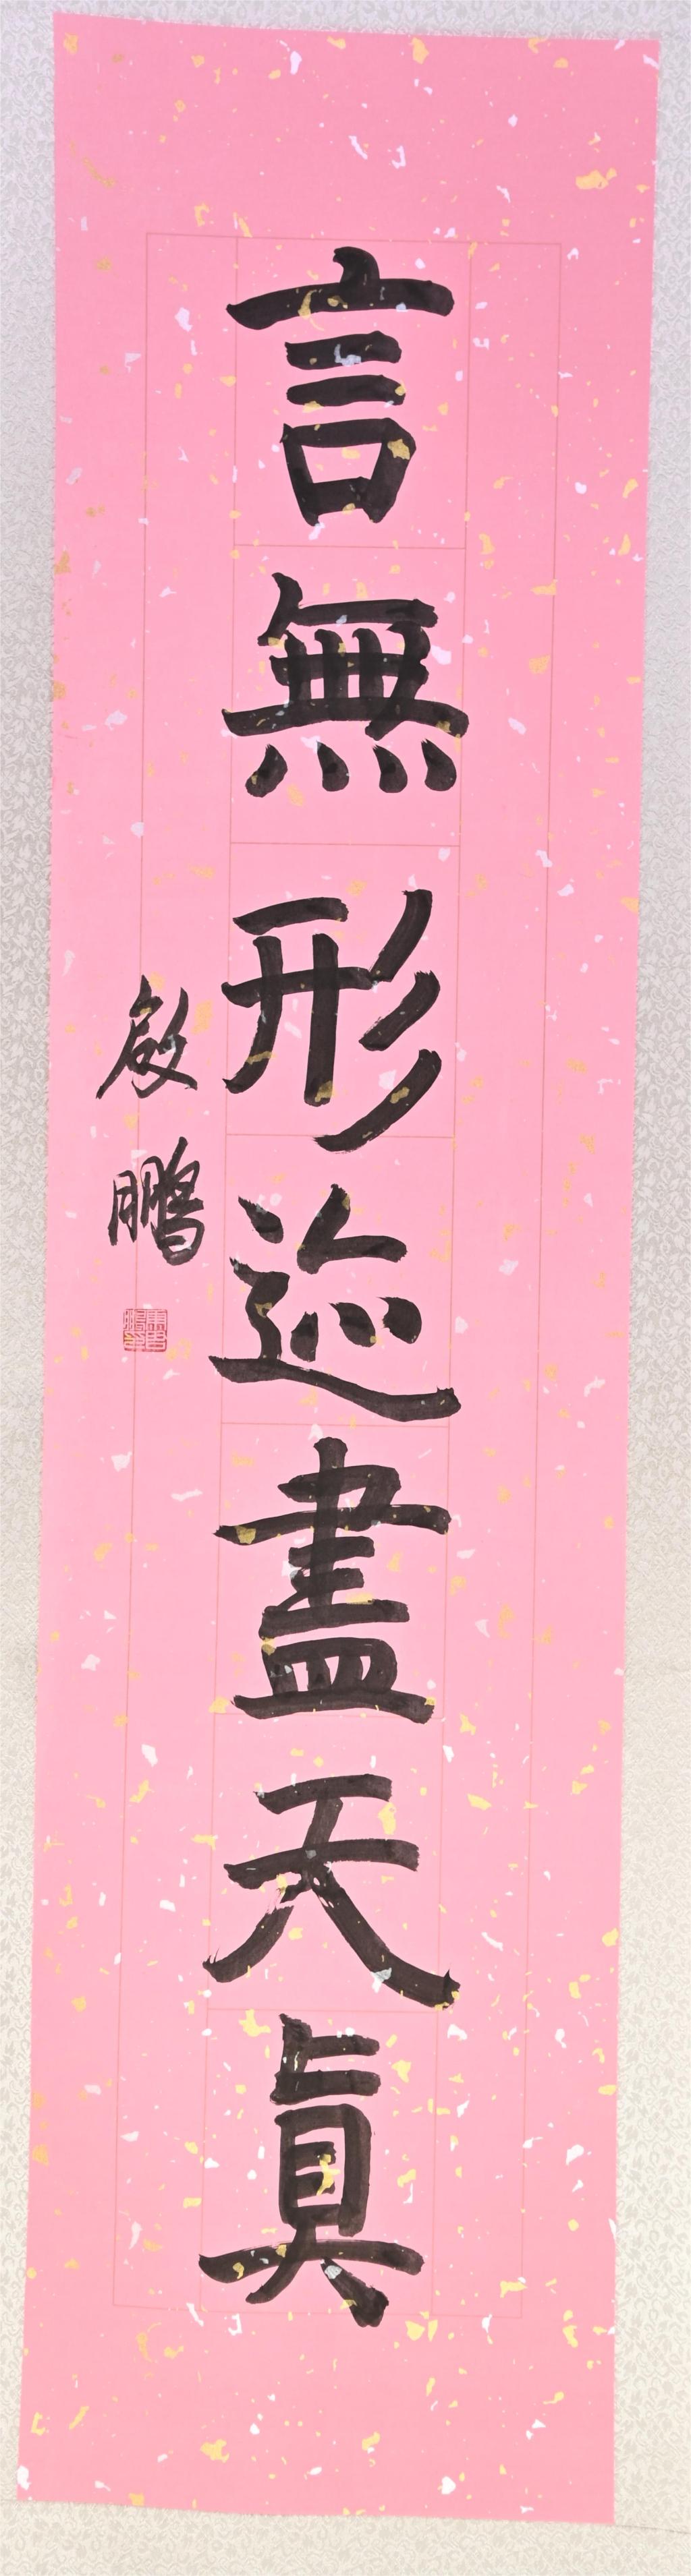 言無形迹盡天真
啟鵬